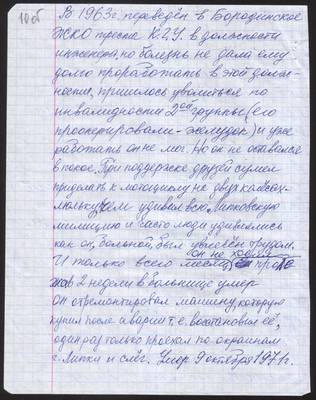 10 об
В 1963г. переведён в Бородинское
ЖКО треста К.У. в должности
инженера, но болезнь не дала ему
долго проработать в этой долж-
ности, пришлось уволиться по
инвалидности 2ой группы (его
прооперировали - желудок) и уже
работать он не мог. Но он не оставался
в покое. При поддержке друзей сумел
приделать к мотоциклу не двухколёсн.
люльку, чем удивил всю Липковскую
милицию и часто люди удивлялись
как он, больной, был увлечён трудом.
И только всего месяц он не ходил
2 недели в больнице умер
он отремонтировал машину, которую
купил после аварии т.е. восстановил её,
один раз только проехал по окраинам
г. Липки и слёг. Умер 9 октября 1971г.